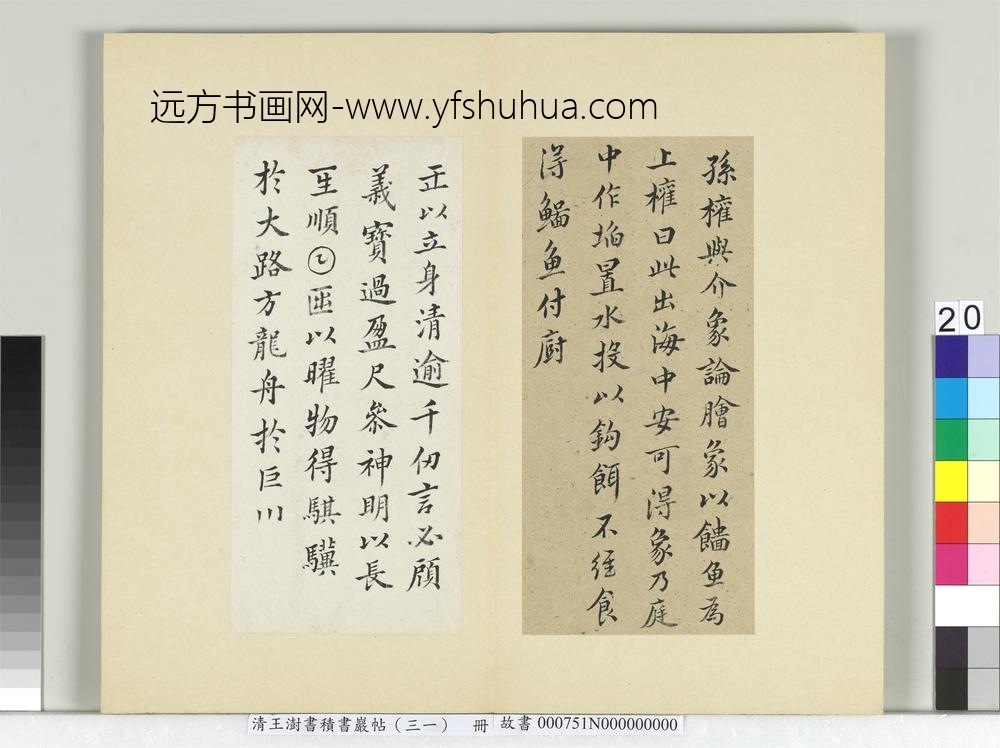 孫權與介象論膾象以魚為
上權曰此出海中安可得象乃庭
中作埳置水投以鈎餌不經食
得鯔魚付廚
以立身清逾千仞言必顧
義寶過盈尺參神明以長
𤯔順𡆠𠥱以曜物得騏驥
於大路方龍舟於巨川
远方书画网-www.yfshuhua.com
20
清王澍書積書巖帖（三一） 冊 故書 000751N000000000